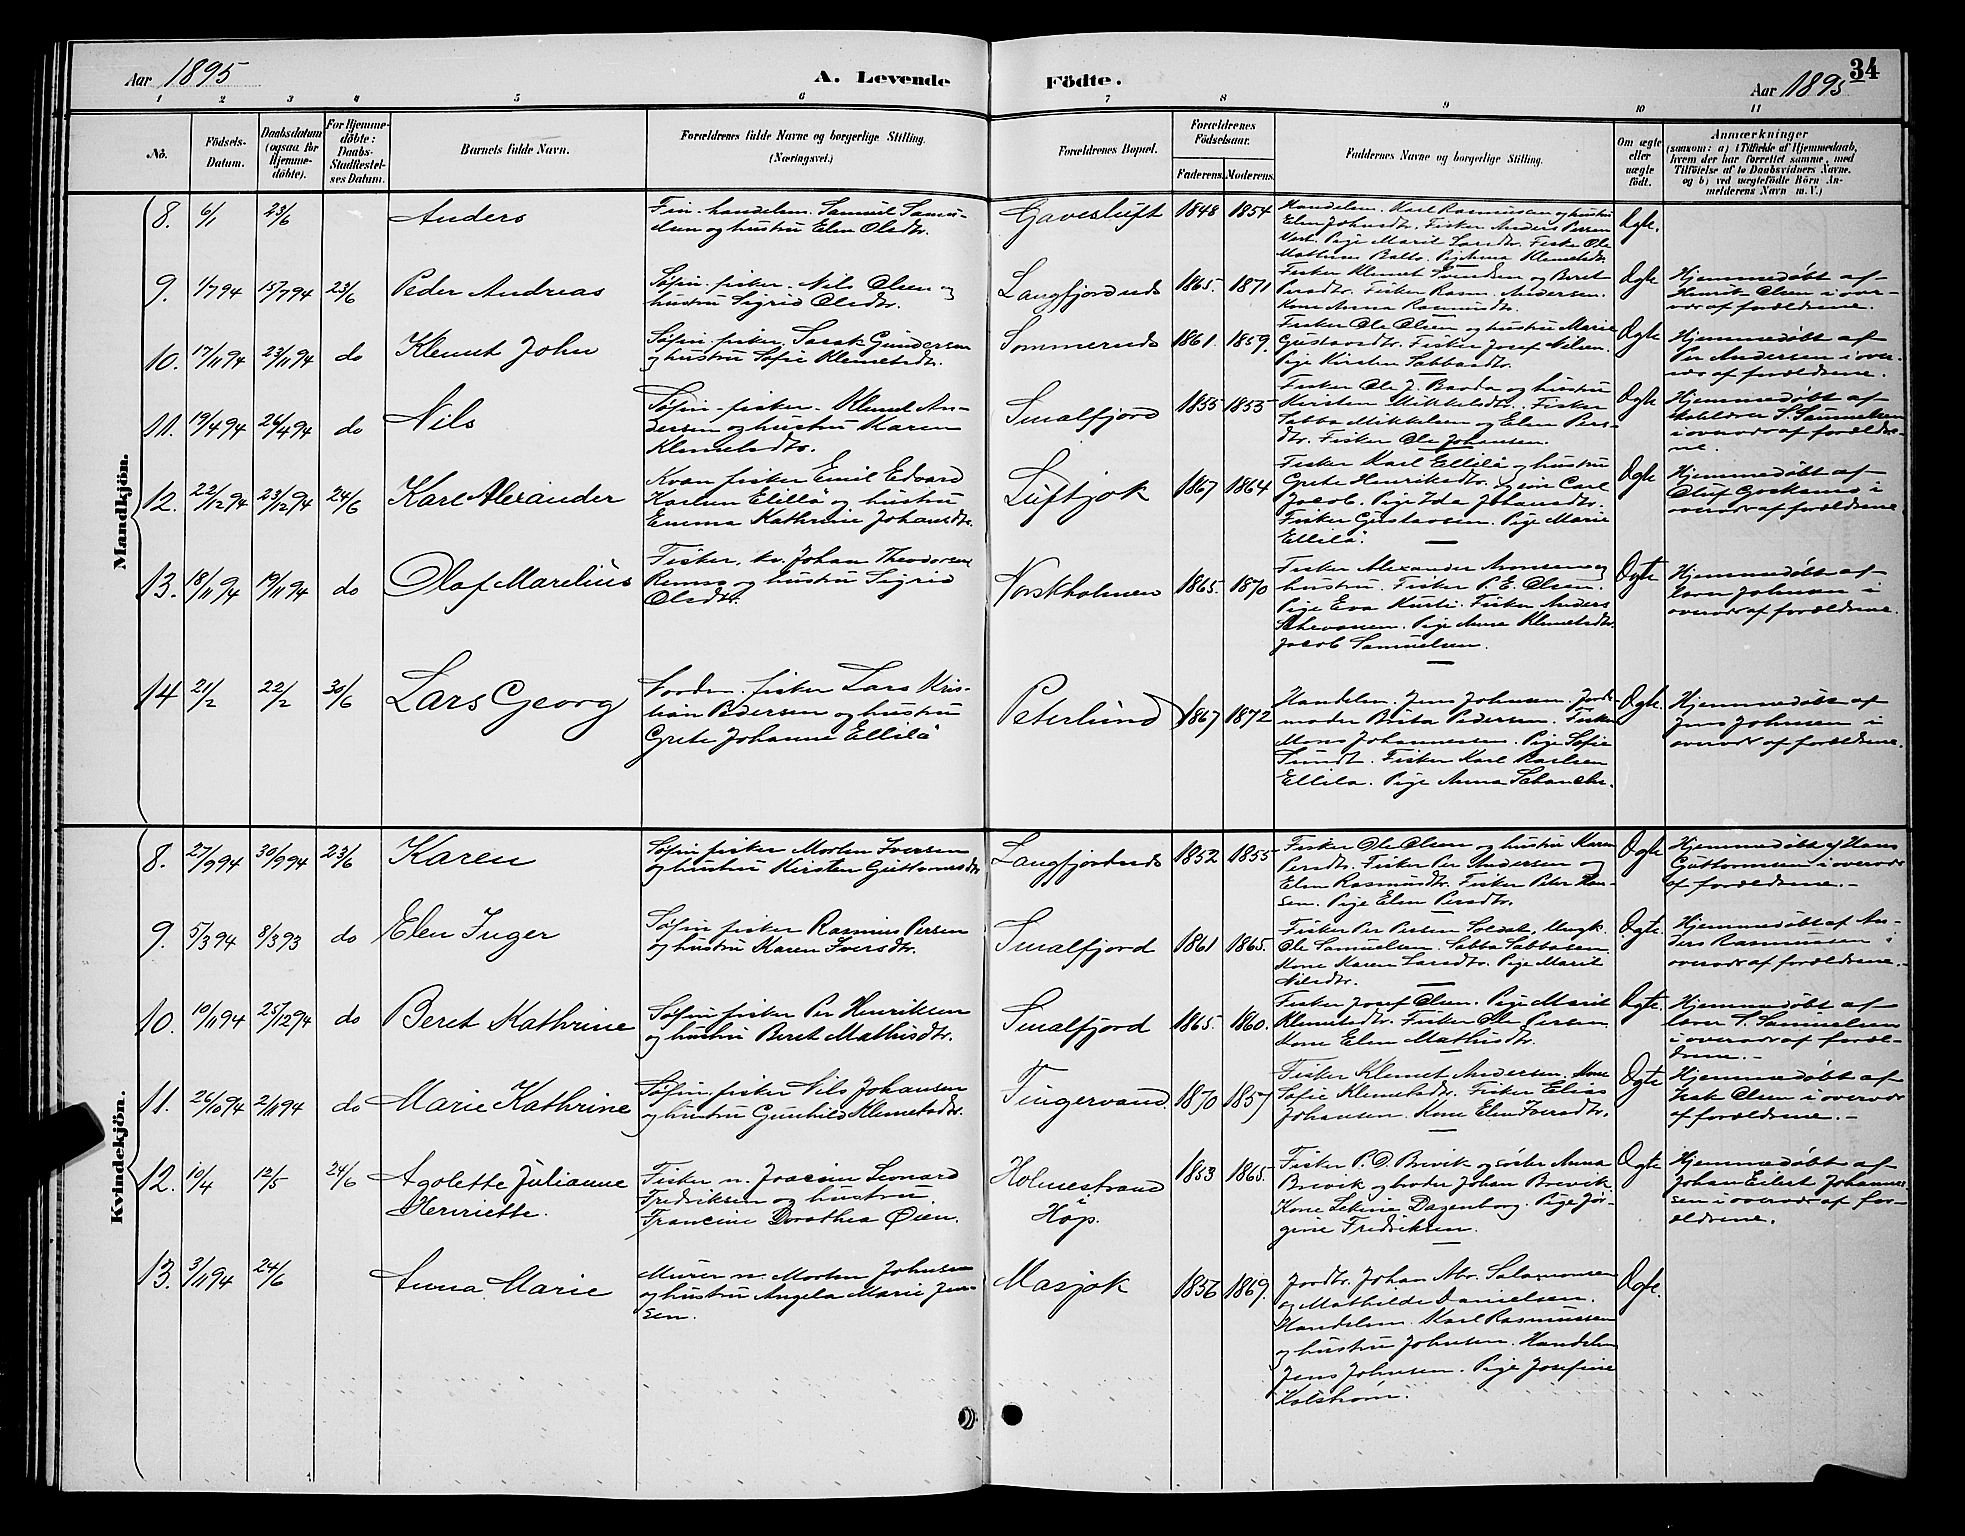 Aar 1895
A. Levende
Födte.
34
Aar 1895
1 2 3 4 5 6 7 8 9 10 11
No.
Födsels-
Datum.
Daabsdatum
(ogsaa for
Hjemme-
döbte).
For Hjemme-
döbte:
Daabs-
Stadfæstel-
ses Datum.
Barnets fulde Navn.
Forældrenes fulde Navne og borgerlige Stilling.
(Næringsvei.)
Forældrenes Bopæl.
Forældrenes
Födselsaar.
Faderens. Moderens.
Faddernes Navne og borgerlige Stilling.
Om ægte
eller
uægte
født.
Anmærkninger
(saasom: a) i Tilfælde af Hjemmedaab,
hvem der har forrettet samme, med
Tilföielse af to Daabsvidners Navne,
og b) ved uægtefödte Börn An-
melderens Navn m. V.)
Mandkjön.
8. 6/1 23/6 Anders
Fin. handelsm. Samuel Samu-
elsen og hustru Elen Olsdtr.
Gavesluft 1848 1854
Handelsm. Karl Rasmussen og hustru
Elen Johnsdtr. Fisker Anders Persen
Vest. Pige Marit Larsdtr. Fisker Ole
Mathisen Balto. Pige Anna Klemetsdtr.
Ægte.
9. 1/7 94 15/7 94 23/6 Peder Andreas
Søfin. fisker. Nils Olsen og
hustru Sigrid Olsdtr.
Langfjordnæs 1865. 1871
Fisker Klemet Svendsen og Beret
Persdtr. Fisker Rasm. Andersen.
Kone Anna Rasmusdtr.
Ægte
Hjemmedøbt af
Henrik Olsen i over-
vær af forældrene.
10. 17/11 94 23/11 94 do Klemet John
Søfin. fisker. Isak Gundersen
og hustru Sofie Klemetsdtr.
Sommernæs 1861. 1859.
Fisker Ole Olsen og hustru Marie
Gustavsdtr. Fisker Josef Nilsen.
Pige Kirsten Sabbasdtr.
Ægte
Hjemmedøbt af
Per Andersen i over-
vær af forældrene.
11. 19/4 94 26/4 94 do Nils
Søfin. fisker. Klemet An-
dersen og hustru Karen
Klemetsdtr.
Smalfjord 1855 1853
Fisker Ole J. Banda og hustru
Kirsten Mikkelsdtr. Fisker
Sabba Mikkelsen og Elen Pers-
dtr. Fisker Ole Johansen.
Ægte
Hjemmedøbt af
skolelærer S. Samuelsen
i overvær af forældre-
ne.
12. 22/12 94 23/12 94 24/6 Karl Alexander
Kvæn fisker Emil Edvard
Karlsen Ellilä og hustru
Emma Kathrine Johansdtr.
Luftjok 1867 1864
Fisker Karl Ellilä og hustru
Grete Henriksdtr. og søn Carl
Jacob. Pige Ida Johansdtr.
Fisker Gustavsen. Pige Marie
Ellilä.
Ægte
Hjemmedøbt af
Oluf Goskamo i
overvær af forældrene
13. 18/11 94 19/11 94 do Olaf Marelius
Fisker. kv. Johan Theodorsen
Remso og hustru Sigrid
Olsdtr.
Norskholmen 1865. 1870
Fisker Alexander Aronsen og
hustru. Fisker P. E. Olsen.
Pige Eva Kurti. Fisker Anders
Schevassen. Pige Anna Klemetsdtr.
Jacob Samuelsen.
Ægte
Hjemmedøbt af
Lars Johnsen i
overvær af forældrene.
14 21/2 22/2 30/6 Lars Georg
Nordm. fisker Lars Kris-
tian Pedersen og hustru
Grete Johanne Ellilä
Peterlund 1867 1872
Handelsm. Jens Johnsen. Jord-
moder Brita Pedersen. Fisker
Mons Johannesen. Pige Sofie
Sundt. Fisker Karl Karlsen
Ellila. Pige Anna Schanche.
Ægte.
Hjemmedøbt af
Jens Johnsen i
overvær af forældrene.
Kvindekjön.
8. 27/9 94 30/9 94 23/6 Karen
Søfin fisker Morten Iversen
og hustru Kirsten Guttormsdtr.
Langfjordnæs 1852 1855
Fisker Ole Olsen og hustru Karen
Persdtr. Fisker Per Andersen og
Elen Rasmusdtr. Fisker Peter Han-
sen. Pige Elen Persdtr.
Ægte
Hjemmedøbt af Hans
Guttormsen i overvær
af forældrene.
9. 5/3 94 8/3 93 do Elen Inger
Søfin fisker Rasmus Persen
og hustru Karen Iversdtr.
Smalfjord 1861 1865.
Fisker Per Persen Soldat. Ungk.
Ole Samuelsen. Sabba Sabbasen.
Kone Karen Larsdtr. Pige Marit
Nilsdtr.
Ægte.
Hjemmedøbt af An-
ders Rasmussen i
overvær af forældrene.
10. 10/11 94 25/12 94 do Beret Kathrine
Søfin fisker Per Henriksen
og hustru Beret Mathisdtr.
Smalfjord 1865. 1860.
Fisker Josef Olsen. Pige Marit
Klemetsdtr. Fisker Ole Persen
Kone Elen Mathisdtr.
Ægte.
Hjemmedøbt af
lærer S. Samuelsen
i overvær af foræl-
drene.
11. 26/10 94 2/11 94 do Marie Kathrine
Søfin. fisker Nils Johansen
og hustru Gunhild Klemetsdtr.
Tingervand. 1870 1857
Fisker Klemet Andersen. Kone
Sofie Klemetsdtr. Fisker Elias
Johansen. Kone Elen Iversdtr.
Ægte
Hjemmedøbt af
Isak Olsen i overvær
af forældrene.
12. 10/4 12/5 24/6 Agolette Julianne
Henriette.
Fisker n. Joacim Leonard
Fredriksen og hustru
Francine Dorothea Øien.
Holmestrand
Hop. 1853 1865.
Fisker P. D. Brevik og søster Anna
Brevik og broder Johan Brevik.
Kone Lekine Dagenborg. Pige Jør-
gine Fredriksen.
Ægte
Hjemmedøbt af
Johan Eilert Johannes-
sen i overvær af for-
ældrene.
13. 3/11 94 24/6 Anna Marie
Murer n. Morten Johnsen
og hustru Angela Marie Jen-
sen.
Masjok 1856 1869.
Jordbr. Johan Abr. Salamonsen
og Mathilde Danielsen.
Handelsm. Karl Rasmussen
og hustru Johnsen. Handelsm
Jens Johnsen. Pige Josefine
Kolstrøm.
Ægte.